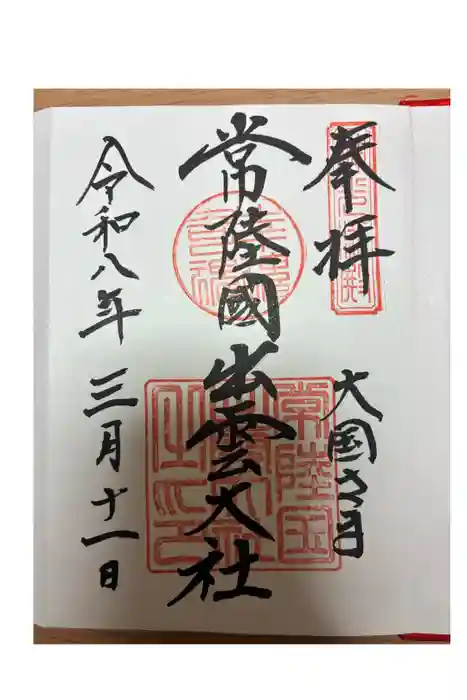 奉拝
大国さ月
常陸國出雲大社
令和八年三月十一日